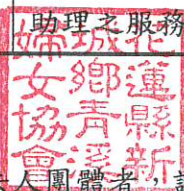 助理之服務
花蓮縣新
城鄉青溪
婦女協會
人團體者